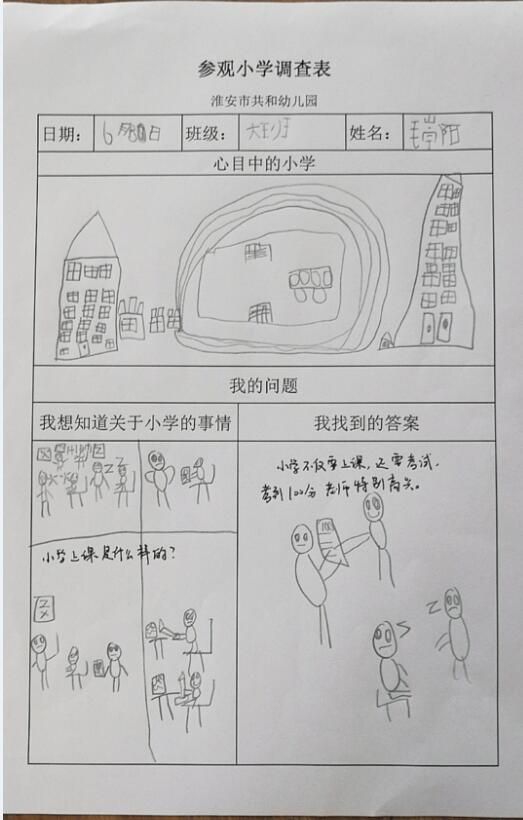 参观小学调查表
淮安市共和幼儿园
日期： 6月 日 班级： 大班 姓名： 阳
心目中的小学
我的问题
我想知道关于小学的事情 我找到的答案
小学不仅要上课，还要考试。
考到100分 老师特别高兴。
100
小学上课是什么样的？
Z
Z
X
Z